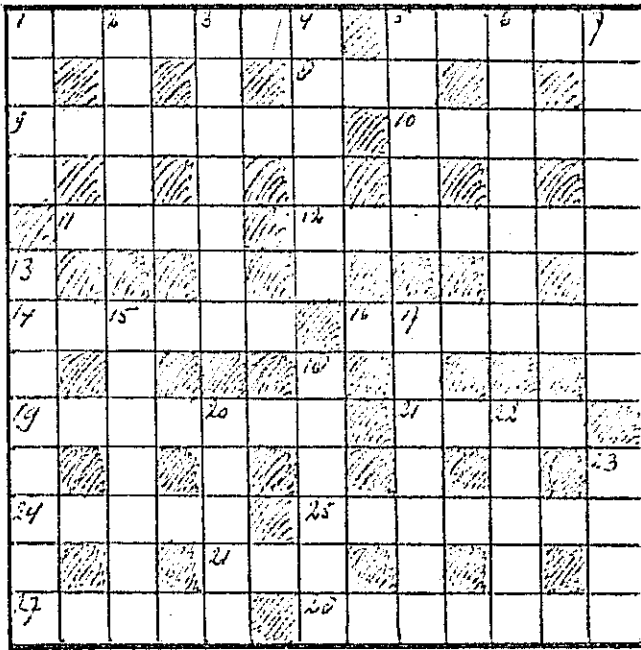 1 2 3 4 5 6 7
8
9 10
11 12
13
14 15 16 17
18
19 20 21 22
23
24 25
21
27 28